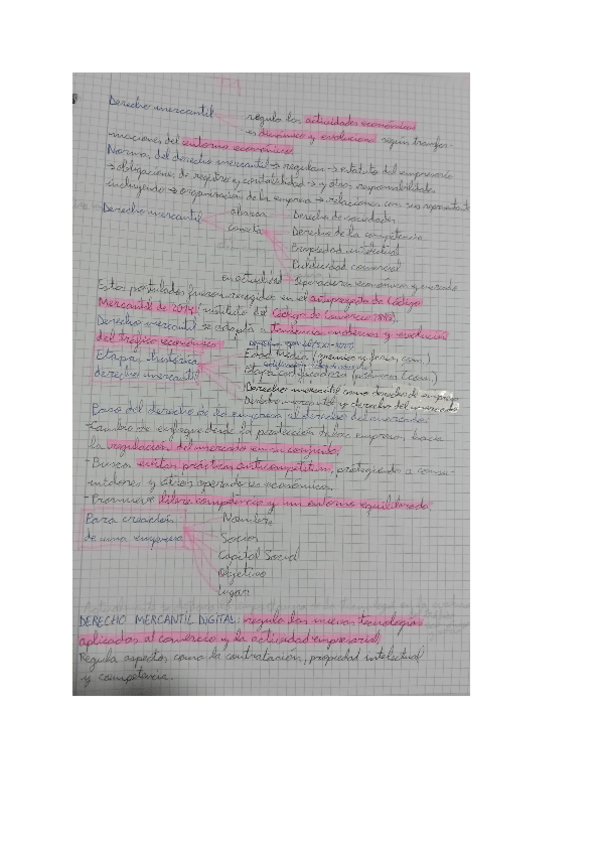 Derecho mercantil
regula las actividades económicas
es dinámico y evoluciona según transfor-
maciones del entorno económico
Normas del derecho mercantil → regulan → estatuto del empresario
→ obligaciones de registro y contabilidad → y otras responsabilidades
incluyendo → organización de la empresa → relaciones con sus representantes
Derecho mercantil
abarca
Derecho de sociedades
Derecho de la competencia
Propiedad intelectual
Publicidad comercial
en actualidad
Estos postulados fueron recogidos en el anteproyecto de Código
Mercantil de 2014, sustituto del Código de Comercio 1885.
Derecho mercantil se adapta a tendencias modernas y evolución
del tráfico económico.
Etapas históricas
derecho mercantil
Edad Media (gremios y ferias com.)
Etapa codificadora
Derecho mercantil como derecho de empresa
Derecho mercantil y derecho del mercado
Paso del derecho de la empresa al derecho del mercado
- Cambio de enfoque desde la protección sobre empresas hacia
la regulación del mercado en su conjunto
- Busca evitar prácticas anticompetitivas, protegiendo a consu-
midores y otros operadores económicos.
- Promueve libre competencia y un entorno equilibrado.
Para creación
de una empresa
Nombre
Socios
Capital Social
Objetivo
Lugar
DERECHO MERCANTIL DIGITAL: regula las nuevas tecnologías
aplicadas al comercio y la actividad empresarial
Regula aspectos como la contratación, propiedad intelectual
y competencia.